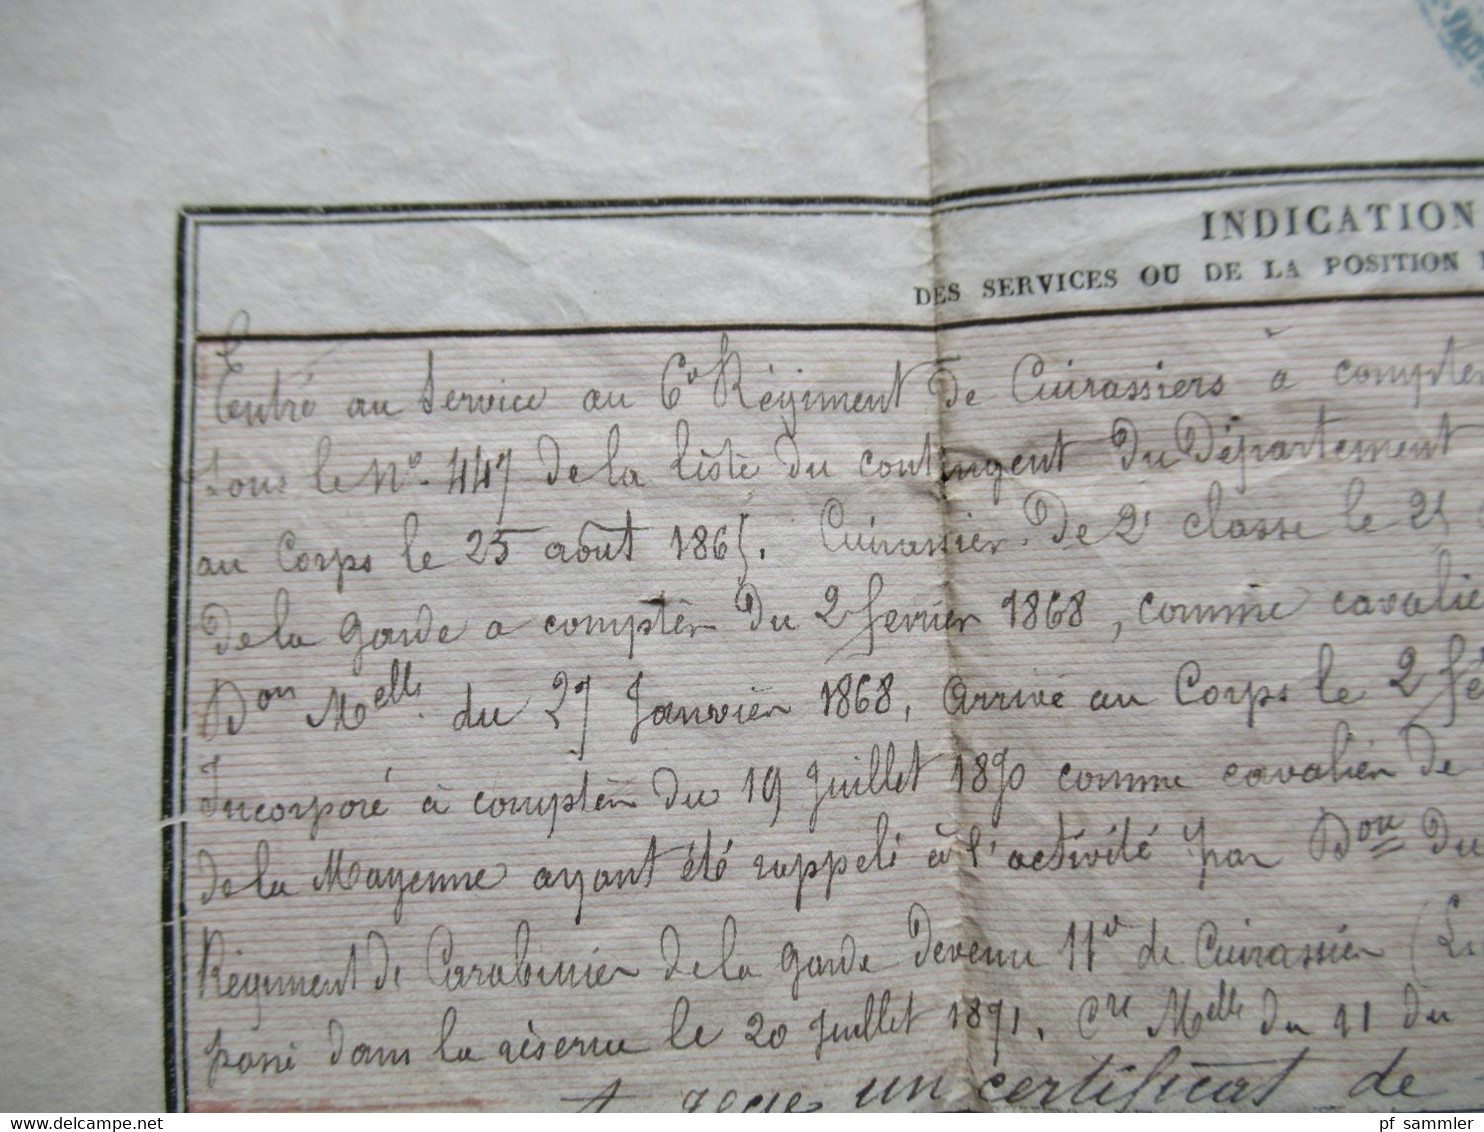 INDICATION
DES SERVICES OU DE LA POSITION
Entré au Service au 6e Régiment de Cuirassiers à compter
sous le No. 447 de la liste du contingent du Département
au Corps le 25 août 1865. Cuirassier de 2e classe le 25
de la garde a compter du 2 fevrier 1868, comme cavalie
Don Melle du 27 Janvier 1868, Arrivé au Corps le 2 fé
Incorporé à compter du 19 Juillet 1870 comme cavalier de
de la Mayenne ayant été rappelé à l'activité par Don du
Régiment de Carabinier de la garde devenu 11e de Cuirassier
passé dans la réserve le 20 Juillet 1871. Cre Melle du 11 du
un certificat de
Delcampe.net
pf_sammler